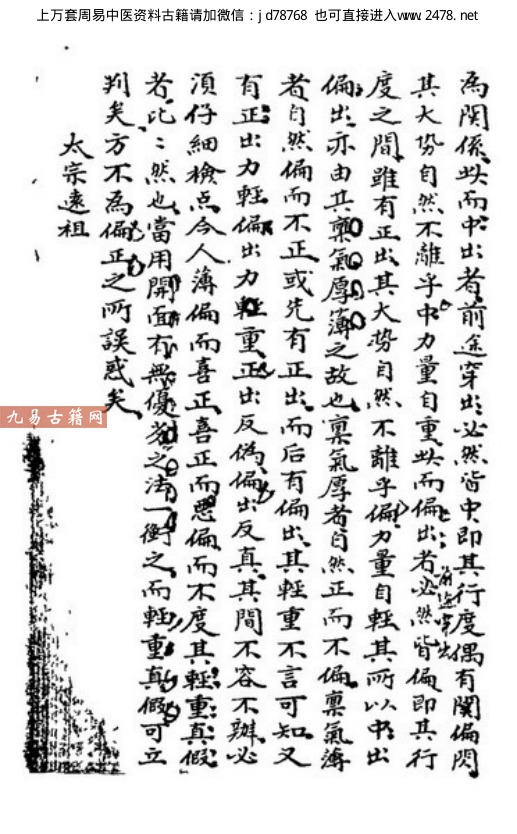 上万套周易中医资料古籍请加微信：jd78768 也可直接进入www.2478.net
為関係此而中出者前途穿出必然皆中即其行度偶有闖偏閃
其大势自然不離乎中力量自重此而偏出者前途穿出必然皆偏即其行
度之間雖有正出其大势自然不離乎偏力量自軽其所以中出
偏出亦由其稟氣厚薄之故也稟氣厚者自然正而不偏稟氣薄
者自然偏而不正或先有正出而后有偏出其軽重不言可知又
有正出力軽偏出力重正出反偽偏出反真其間不容不辨必
須仔細檢点今人薄偏而喜正喜正而惡偏而不度其軽重真假
者比比然也當用開面有無優劣之法一衡之而軽重真假可立
判矣方不為偏正之所誤惑矣
太宗遠祖
九易古籍网